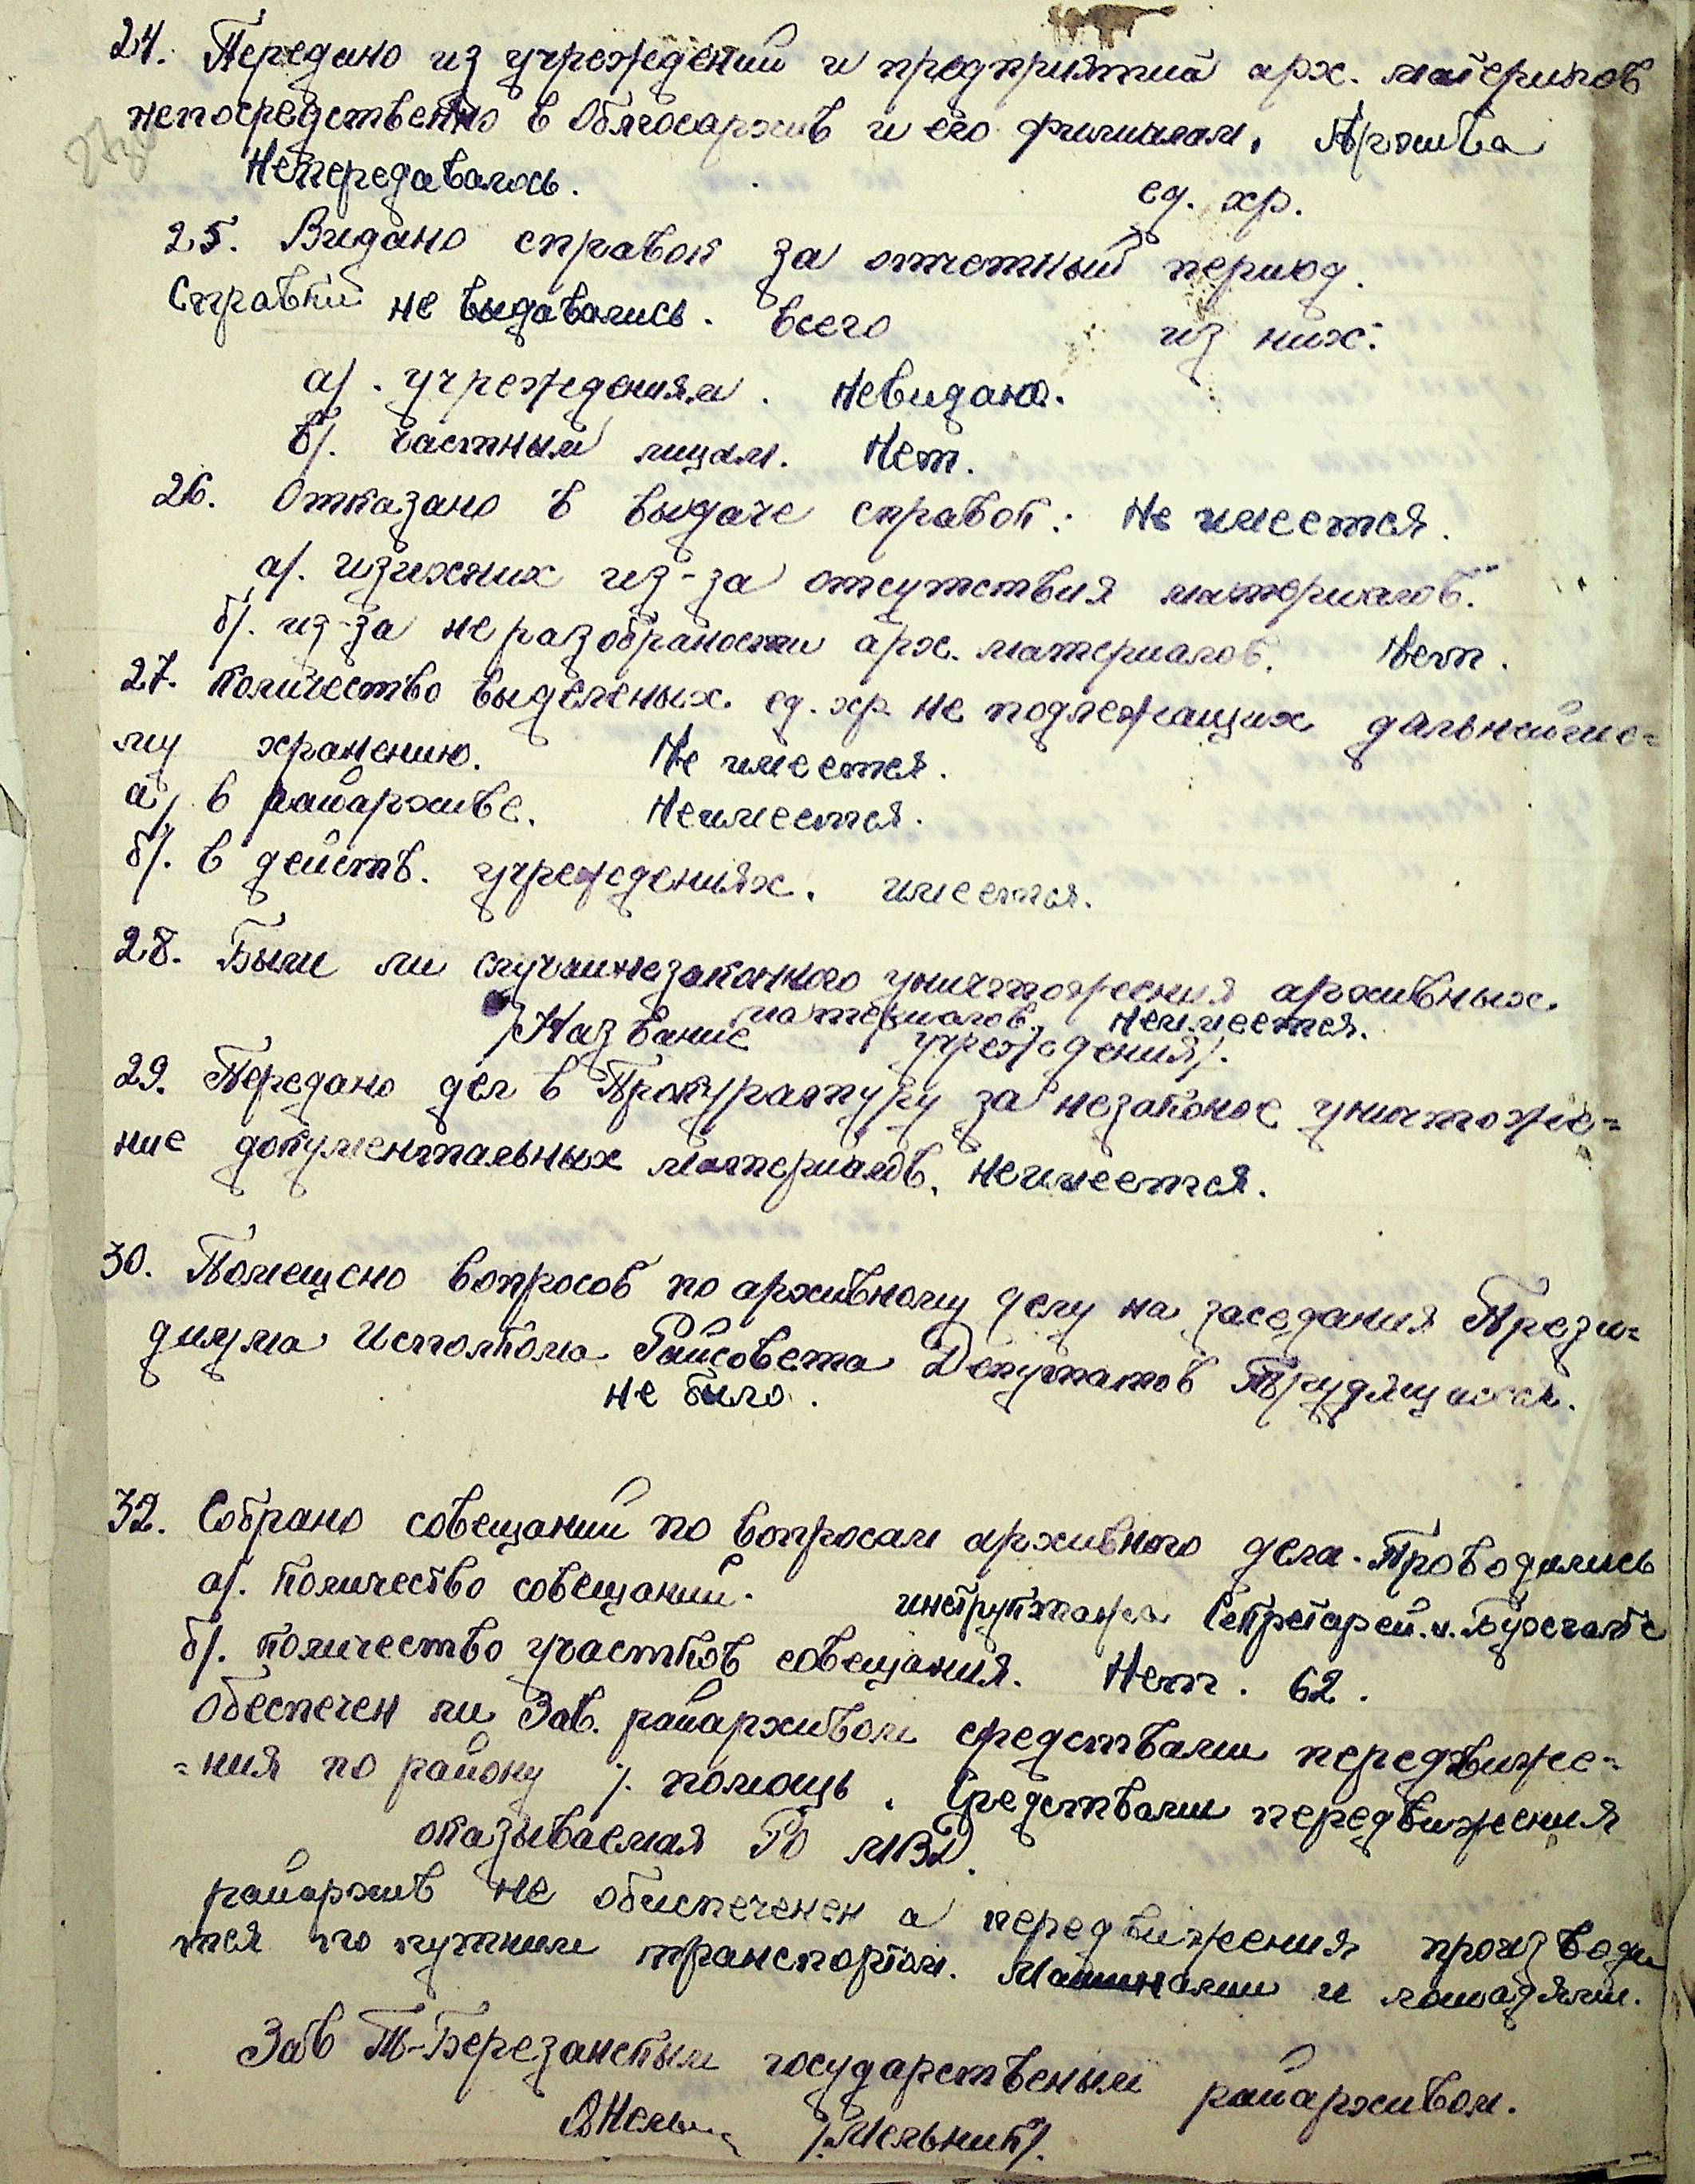 24. Передано из учреждений и предприятий арх. материалов
непосредственно в Облгосархив и его филиалам. Архива
Непередавалось.
ед. хр.
25. Видано справок за отчетный период.
Справки не выдавались. Всего из них:
а/. учреждениям. Невидано.
б/. частным лицам. Нет.
26. Отказано в выдаче справок: Не имеется.
а/. изижних из-за отсутствия материалов.
б/. из-за не разобраности арх. материалов. Нет.
27. Количество выделеных ед. хр. не подлежащих дальнейше=
му хранению. Не имеется.
а/ в райархиве. Неимеется.
б/. в действ. учреждениях. имеется.
28. Были ли случаи незаконного уничтожения архивных
материалов. Неимеется.
/Название учреждения/.
29. Передано дел в Прокуратуру за незаконое уничтоже=
ние документальных материалов. Неимеется.
30. Помещено вопросов по архивному делу на заседания Прези=
диума Исполкома Райсовета Депутатов Трудящихся.
не было.
32. Собрано совещаний по вопросам архивного дела. Проводились
а/. Количество совещаний. инструктажа Секретарей. и. Бухгалте
б/. Количество участков совещания. Нет. 62.
Обеспечен ли Зав. райархивом средствами передвиже=
=ния по району /. помощь. Средствами передвижения
оказываемая РО МВД.
райархив не обиспеченен а передвижения производи
тся по путним транспортом. Машинами и лошадями.
Зав Т-Березанским государственым райархивом.
/.Мельник/.